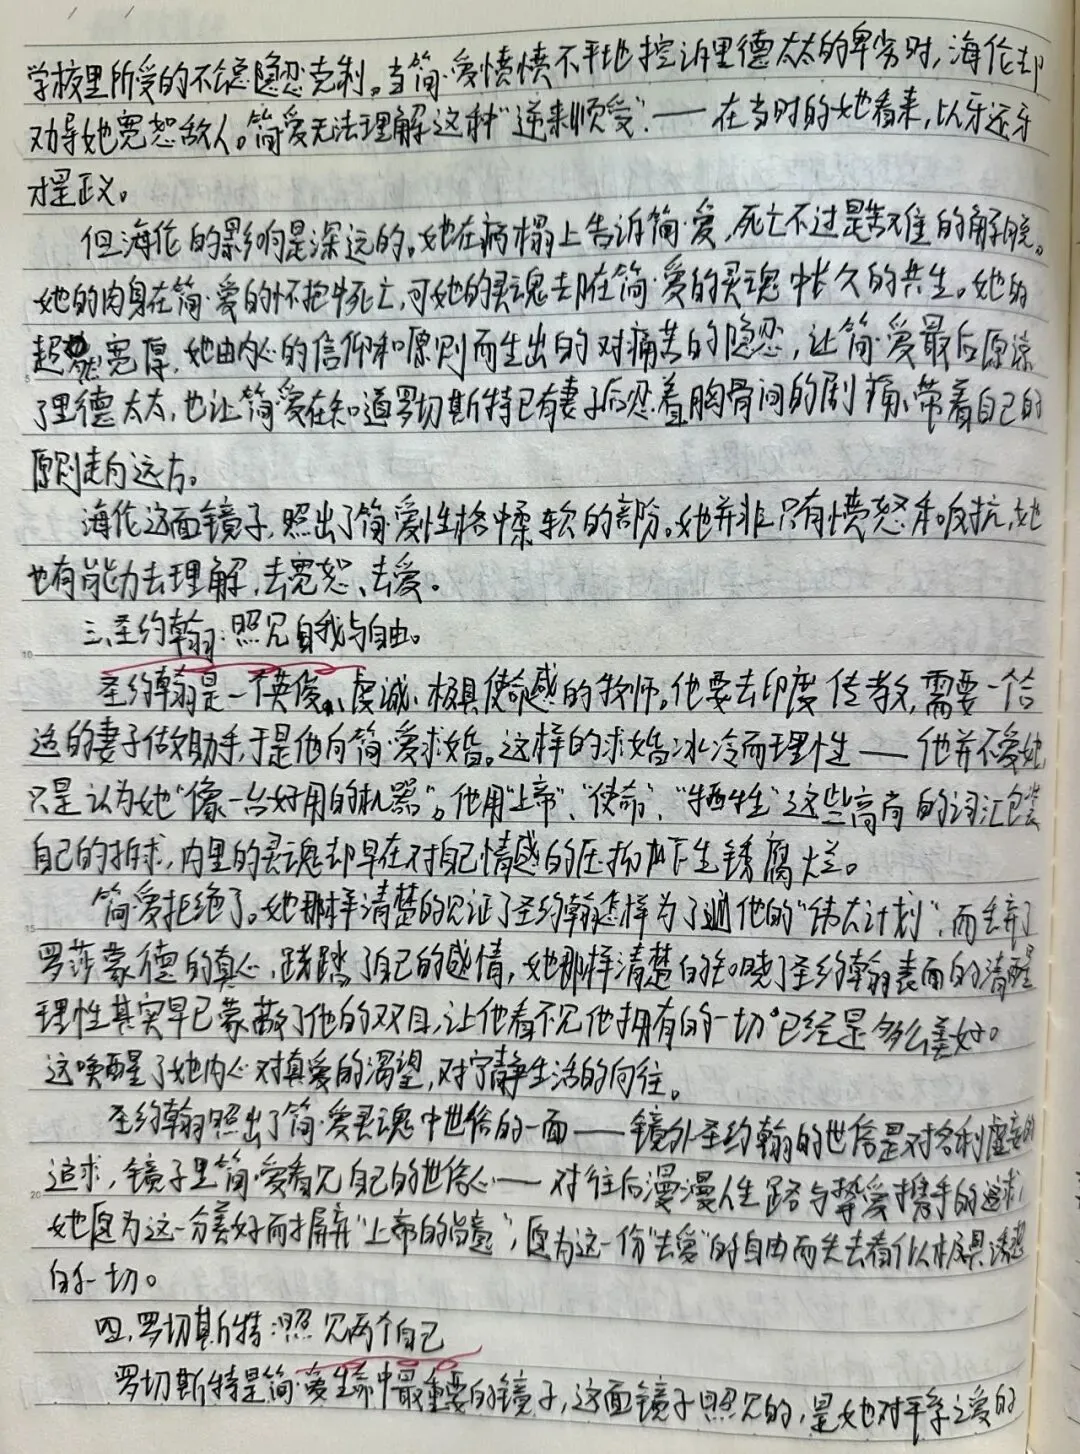 学校里所受的不公隐忍克制。当简·爱愤愤不平地控诉里德太太的卑劣时，海伦却
劝导她宽恕敌人。简·爱无法理解这种“逆来顺受”——在当时的她看来，以牙还牙
才是正义。
但海伦的影响是深远的。她在病榻上告诉简·爱，死亡不过是苦难的解脱。
她的肉身在简·爱的怀抱中死亡，可她的灵魂却在简·爱的灵魂中长久的共生。她的
超然宽厚，她由内心的信仰和原则而生出的对痛苦的隐忍，让简·爱最后原谅
了里德太太，也让简·爱在知道罗切斯特已有妻子后忍着胸骨间的剧痛、带着自己的
原则走向远方。
海伦这面镜子，照出了简·爱性格中柔软的部分。她并非只有愤怒和反抗，她
也有能力去理解、去宽恕、去爱。
三、圣约翰：照见自我与自由。
圣约翰是一个英俊、虔诚、极具使命感的牧师。他要去印度传教，需要一个合
适的妻子做助手，于是他向简·爱求婚。这样的求婚冰冷而理性——他并不爱她，
只是认为她“像一台好用的机器”。他用“上帝”、“使命”、“牺牲”这些高尚的词汇包装
自己的拍求，内里的灵魂却早在对自己情感的压抑下生锈腐烂。
简·爱拒绝了。她那样清楚的见证了圣约翰怎样为了他的“伟大计划”，而丢弃了
罗莎蒙德的真心，践踏了自己的感情，她那样清楚的知晓了圣约翰表面的清醒
理性其实早已蒙蔽了他的双目，让他看不见他拥有的一切已经是多么美好。
这唤醒了她内心对真爱的渴望，对宁静生活的向往。
圣约翰照出了简·爱灵魂中世俗的一面——镜外圣约翰的世俗是对名利虚妄的
追求，镜子里简·爱看见自己的世俗心——对往后漫漫人生路与挚爱携手的追求，
她愿为这一分美好而摒弃“上帝的旨意”，愿为这一份“去爱”的自由而失去看似极具诱惑
的一切。
四、罗切斯特：照见两个自己
罗切斯特是简·爱生命中最重要的镜子，这面镜子照见的，是她对平等之爱的